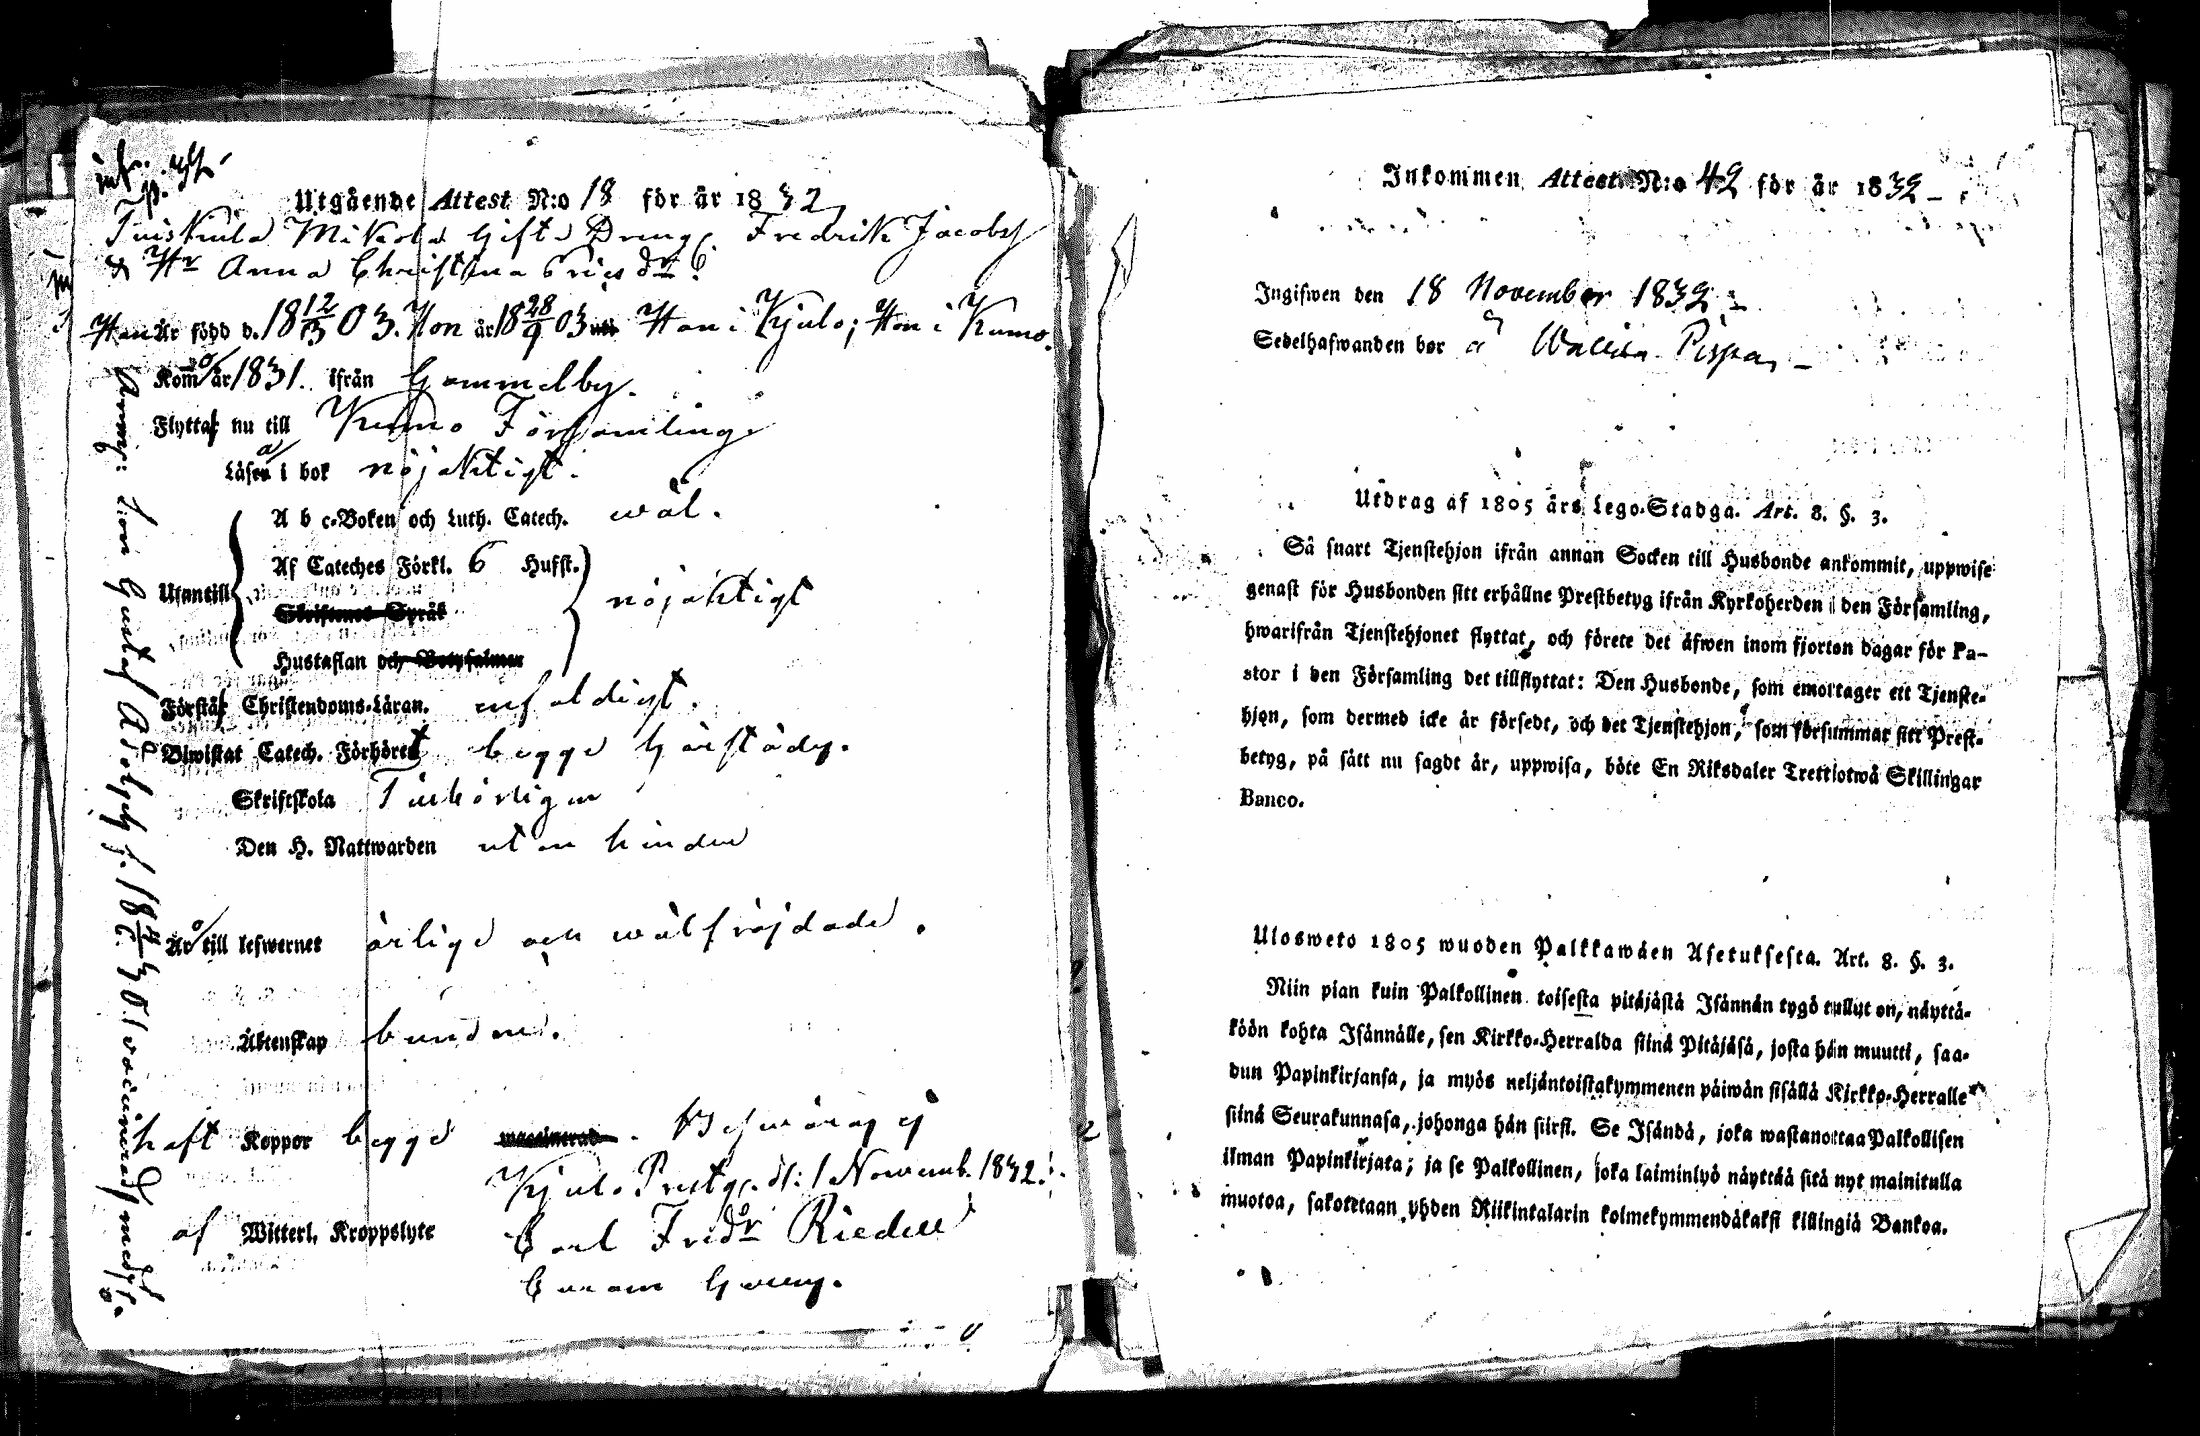 inf. p. 42
Utgående Attest N:o 18 för år 1832
Tuiskula Mikola Gifte Dreng Fredrik Jacobsf
& Hr Anna Christina Ericsdr
Han är född d. 18 12/3 03. Hon är 18 28/9 03 Han i Kjulo; Hon i Kumo.
Kommo år 1831. ifrån Gammelby.
Flytta nu till Kumo Församling
Läsa i bok nöjaktigt.
A b c-Boken och Luth. Catech. wäl.
Af Cateches Förkl. 6 Hufst.
Utantill nöjaktigt
Skriftenes Språk
Hustaflan och Botpsalmer
Förstå Christendoms-Läran. enfaldigt.
Biwistat Catech. Förhöret begge härstädes.
Skriftskola
Den H. Nattwarden utan hinder
Äro till lefwernet ärlige och wälfräjdade.
Äktenskap bundne.
haft Koppor begge waccinerad. Beswäras ej
Kjulo Prestg. d: 1 Novemb. 1832.
af Witterl. Kroppslyte Carl Fredr Riedell
Anmf: Son Gustaf Adolph f. 18 30. vaccinerad medf.
Inkommen Attest N:o 42 för år 1832
Ingifwen den 18 November 1832
Sedelhafwanden bor å Wallila Pispa
Utdrag af 1805 års Lego-Stadga. Art. 8. §. 3.
Så snart Tjenstehjon ifrån annan Socken till Husbonde ankommit, uppwise
genast för Husbonden sitt erhållne Prestbetyg ifrån Kyrkoherden i den Församling,
hwarifrån Tjenstehjonet flyttat, och förete det äfwen inom fjorton dagar för Pa-
stor i den Församling det tillflyttat: Den Husbonde, som emottager ett Tjenste-
hjon, som dermed icke är försedt, och det Tjenstehjon, som försummar sitt Prest-
betyg, på sätt nu sagdt är, uppwisa, böte En Riksdaler Trettiotwå Skillingar
Banco.
Ulosweto 1805 wuoden Palkkawäen Asetuksesta. Art. 8. §. 3.
Niin pian kuin Palkollinen toisesta pitäjästä Isännän tygö tullut on, näyttä-
köön kohta Isännälle, sen Kirkko-Herralda siinä Pitäjäsä, josta hän muutti, saa-
dun Papinkirjansa, ja myös neljäntoistakymmenen päiwän sisällä Kirkko-Herralle
siinä Seurakunnasa, johonga hän siirsi. Se Isändä, joka wastanottaa Palkollisen
ilman Papinkirjata; ja se Palkollinen, joka laiminlyö näyttää sitä nyt mainitulla
muotoa, sakotetaan yhden Riikintalarin kolmekymmendäkaksi killingiä Bankoa.